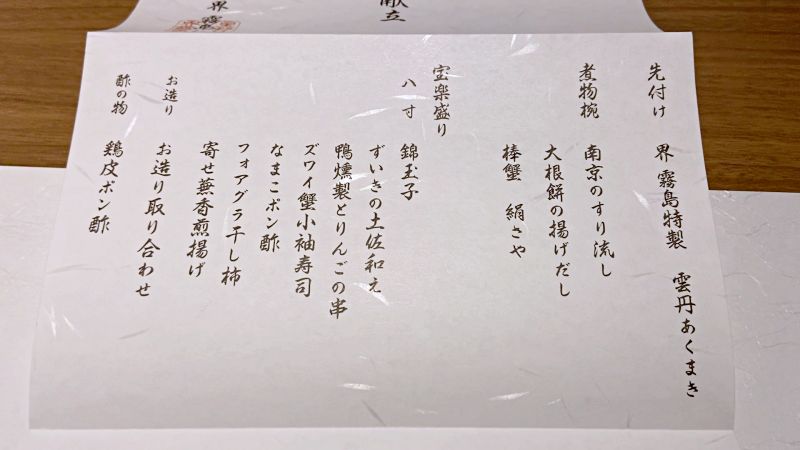 献立
界 霧島
先付け 界 霧島特製 雲丹あくまき
煮物椀 南京のすり流し
大根餅の揚げだし
棒蟹 絹さや
宝楽盛り
八寸 錦玉子
ずいきの土佐和え
鴨燻製とりんごの串
ズワイ蟹小袖寿司
なまこポン酢
フォアグラ干し柿
寄せ蕪香煎揚げ
お造り お造り取り合わせ
酢の物 鶏皮ポン酢